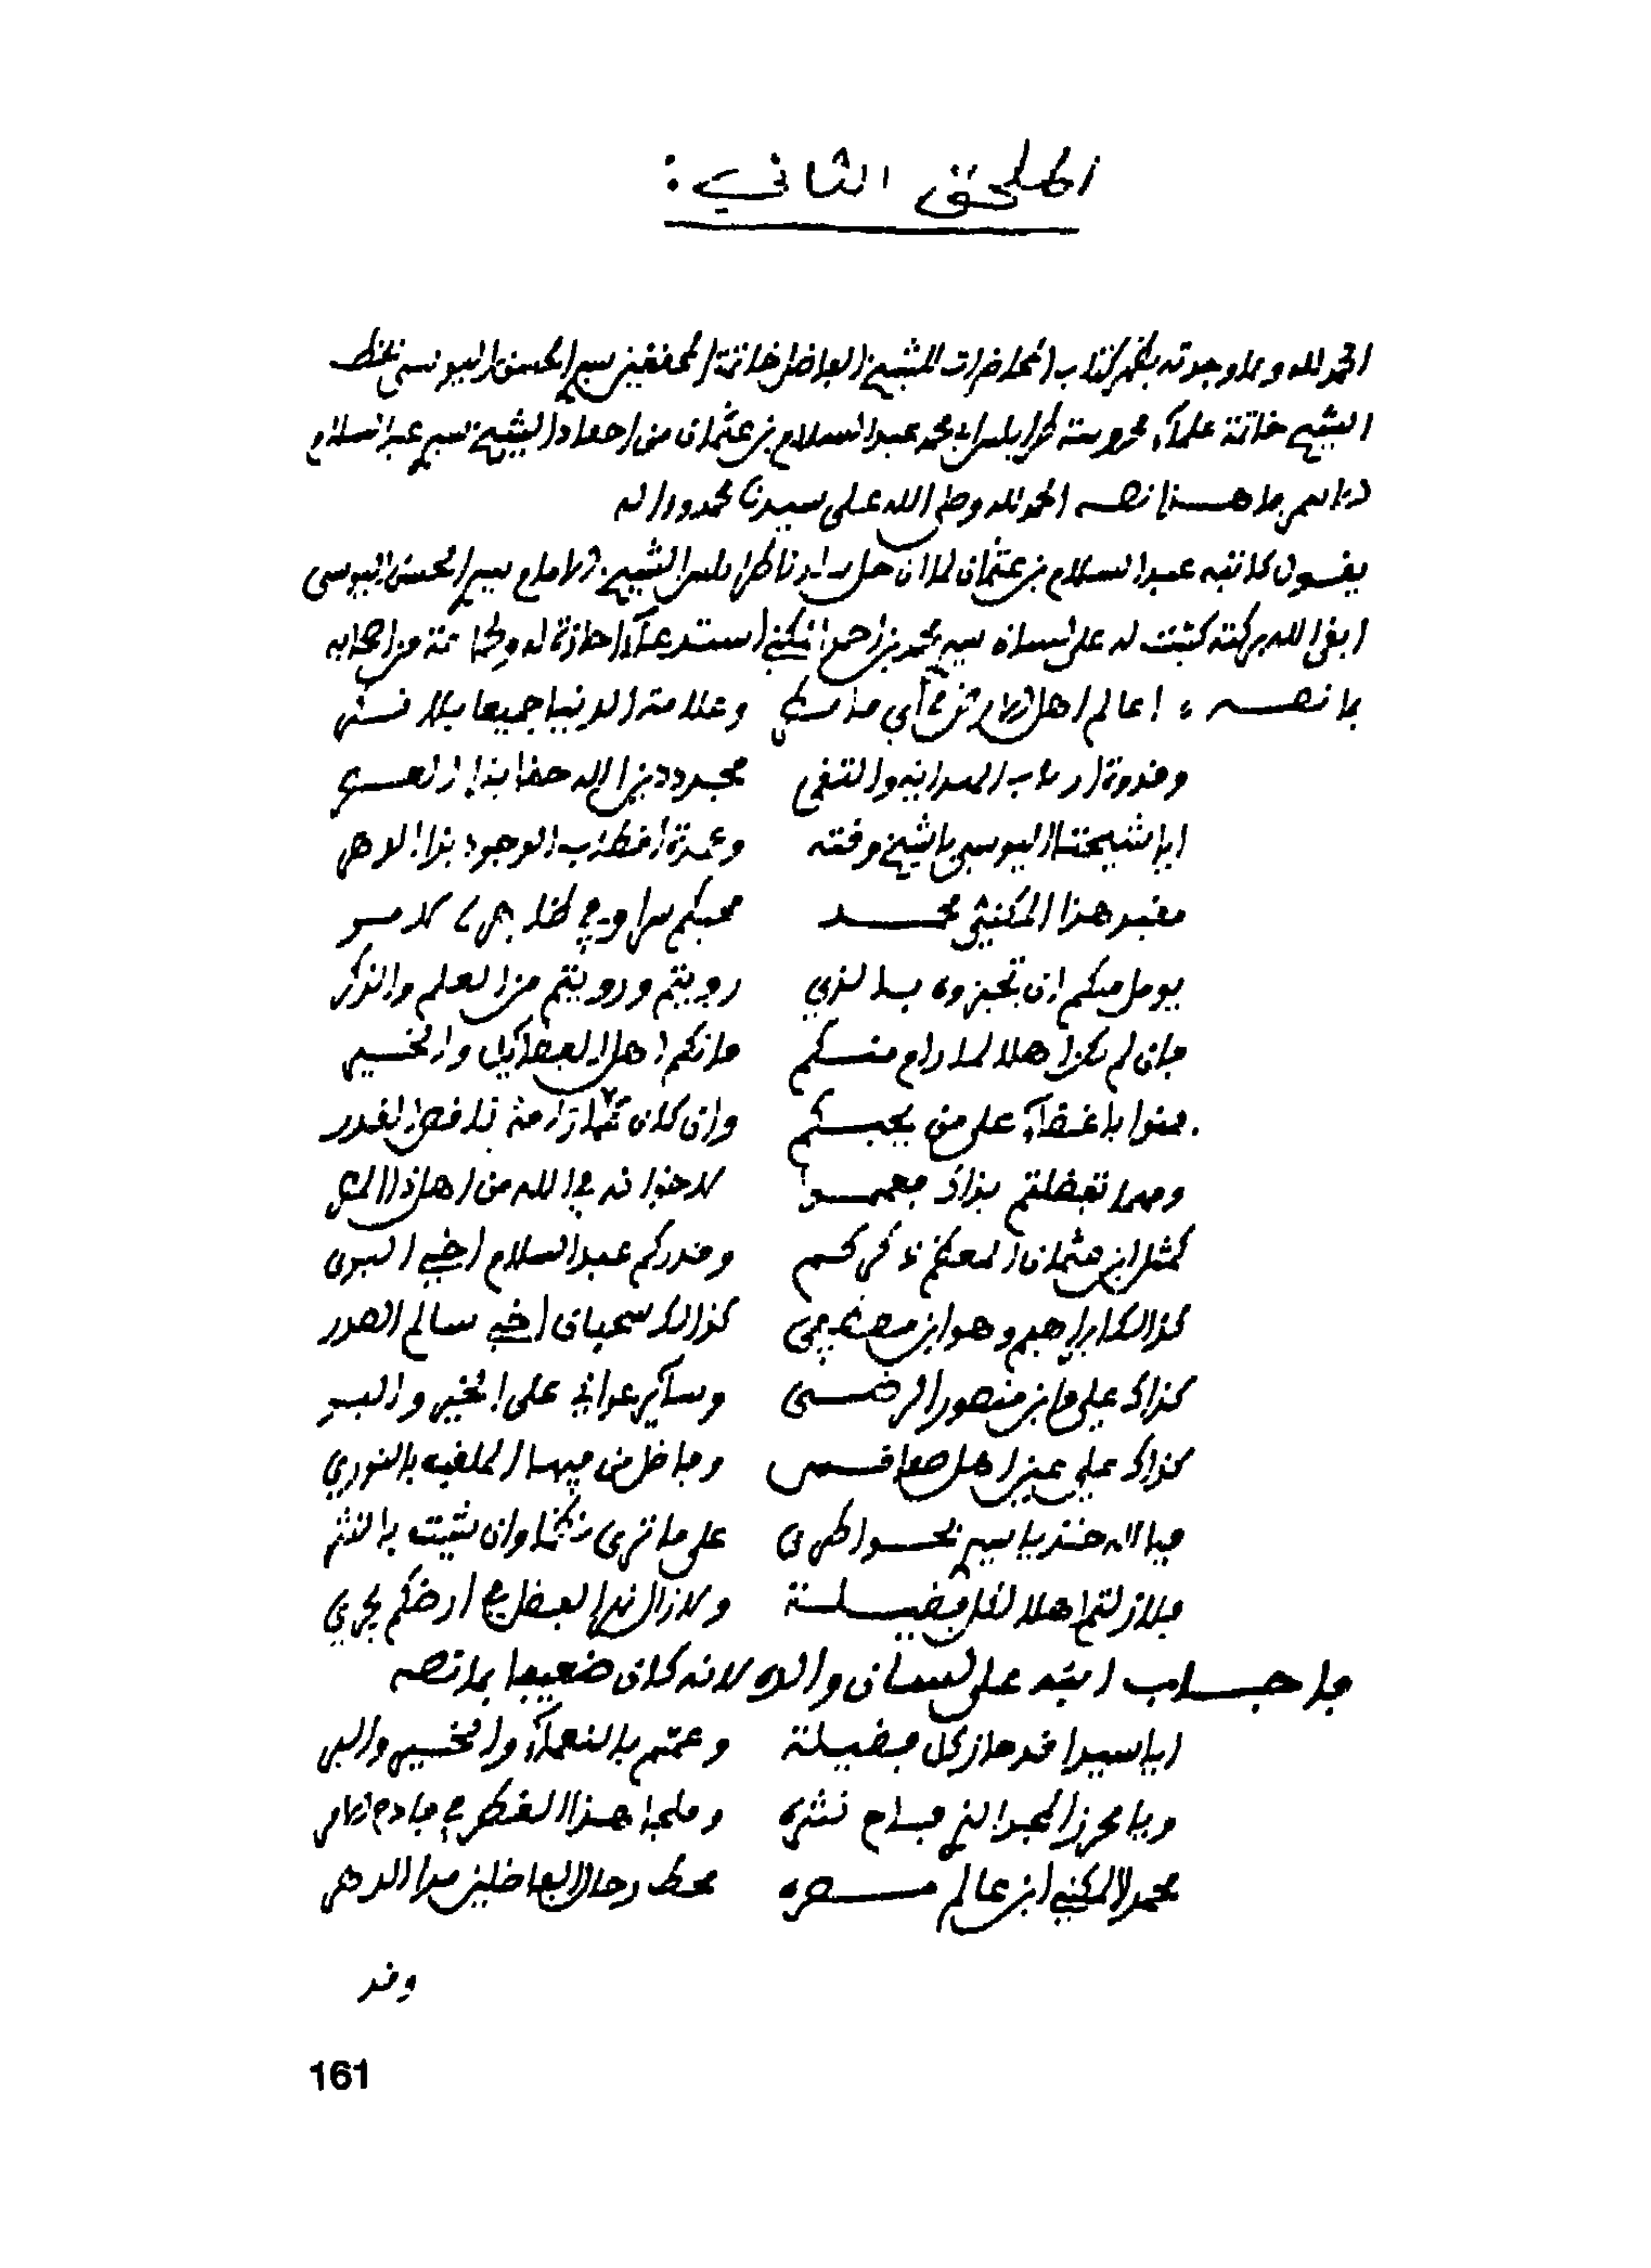 الملحق الثاني :
الحمد لله ومما وجدته بظهر كتاب المحاضرات للشيخ الفاضل خاتمة المحققين سيدي الحسن اليوسي بخط
الشيخ خاتمة علماء محروسة طرابلس ابي محمد عبد السلام بن عثمان من احفاد الشيخ سيدي عبد السلام
ما هذا نصه الحمد لله وصلى الله على سيدنا محمد وءاله
يقول كاتبه عبد السلام بن عثمان لما ان حل ببلدنا طرابلس الشيخ الامام سيدي الحسن اليوسي
ابقى الله بركته كتبت له على لسان سيدي محمد بن احمد المكني استدعاء اجازة له ولجماعة من اصحابه
بما نصه ، اعالم اهل الارض وعلامة الدنيا جميعا بلا نكر
وقدوة ارباب الدراية والتقى مجدد دين الاله حقا بذا العصر
ايا شيخنا اليوسي يا شيخ وقته وعمدة اقطاب الوجود بذا الدهر
مقيد هذا المكني محمد محبكم سرا وفي ظاهر الامر
يومل منكم ان تجيزوه بالذي رويتم ورويتم من العلم والذكر
فان لم يكن اهلا لما رام منكم فانكم اهل الفضائل والخير
على من يحبكم وان كان ناقص القدر
ومهما تفضلتم بذاك فعمموا لاخوانه في الله من اهل ذا
كمثل ابن عثمان وقدركم عبد السلام اخي البر
كذالك ابراهيم وهو ابن مصطفى كذالك سحبان اخي سالم الصدر
كذاك علي وابن منصور الرضى وسائر على الخير والبر
كذاك علي عين اهل صفاقس وفاضل من فيها الملقب بالنوري
فبالله خذ يا سيدي نحو على ما ترى نظما وان شيت بالنثر
فلا زلتم اهلا لكل فضيلة ولا زال الفضل في ارضكم يجري
فاجاب ابنه على لسان والده لانه كان ضعيفا بما نصه
ايا سيدا قد حاز كل فضيلة وعمم بالنعماء والخير والبر
ويا محرز المجد الذي فاح نشره وملجا هذا القطر في
محمد المكني ابن عالم عصره محط رحال الفاضلين مدا الدهر
وقد
161